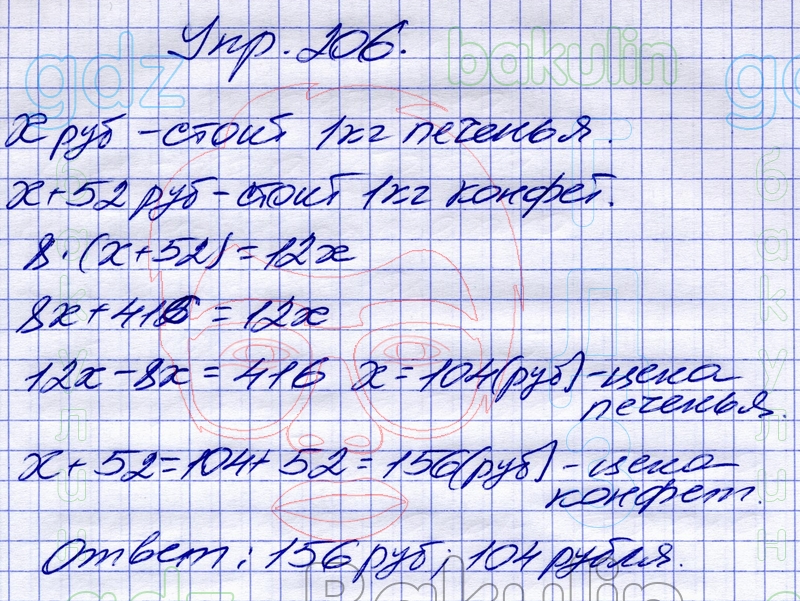 Упр. 206.
gdz bakulin gdz
x руб - стоит 1 кг печенья.
x+52 руб - стоит 1 кг конфет.
8·(x+52)=12x
8x+416=12x
12x-8x=416 x=104(руб) - цена
печенья.
x+52=104+52=156(руб) - цена
конфет.
Ответ: 156 руб; 104 рубля.
gdz Bakulin